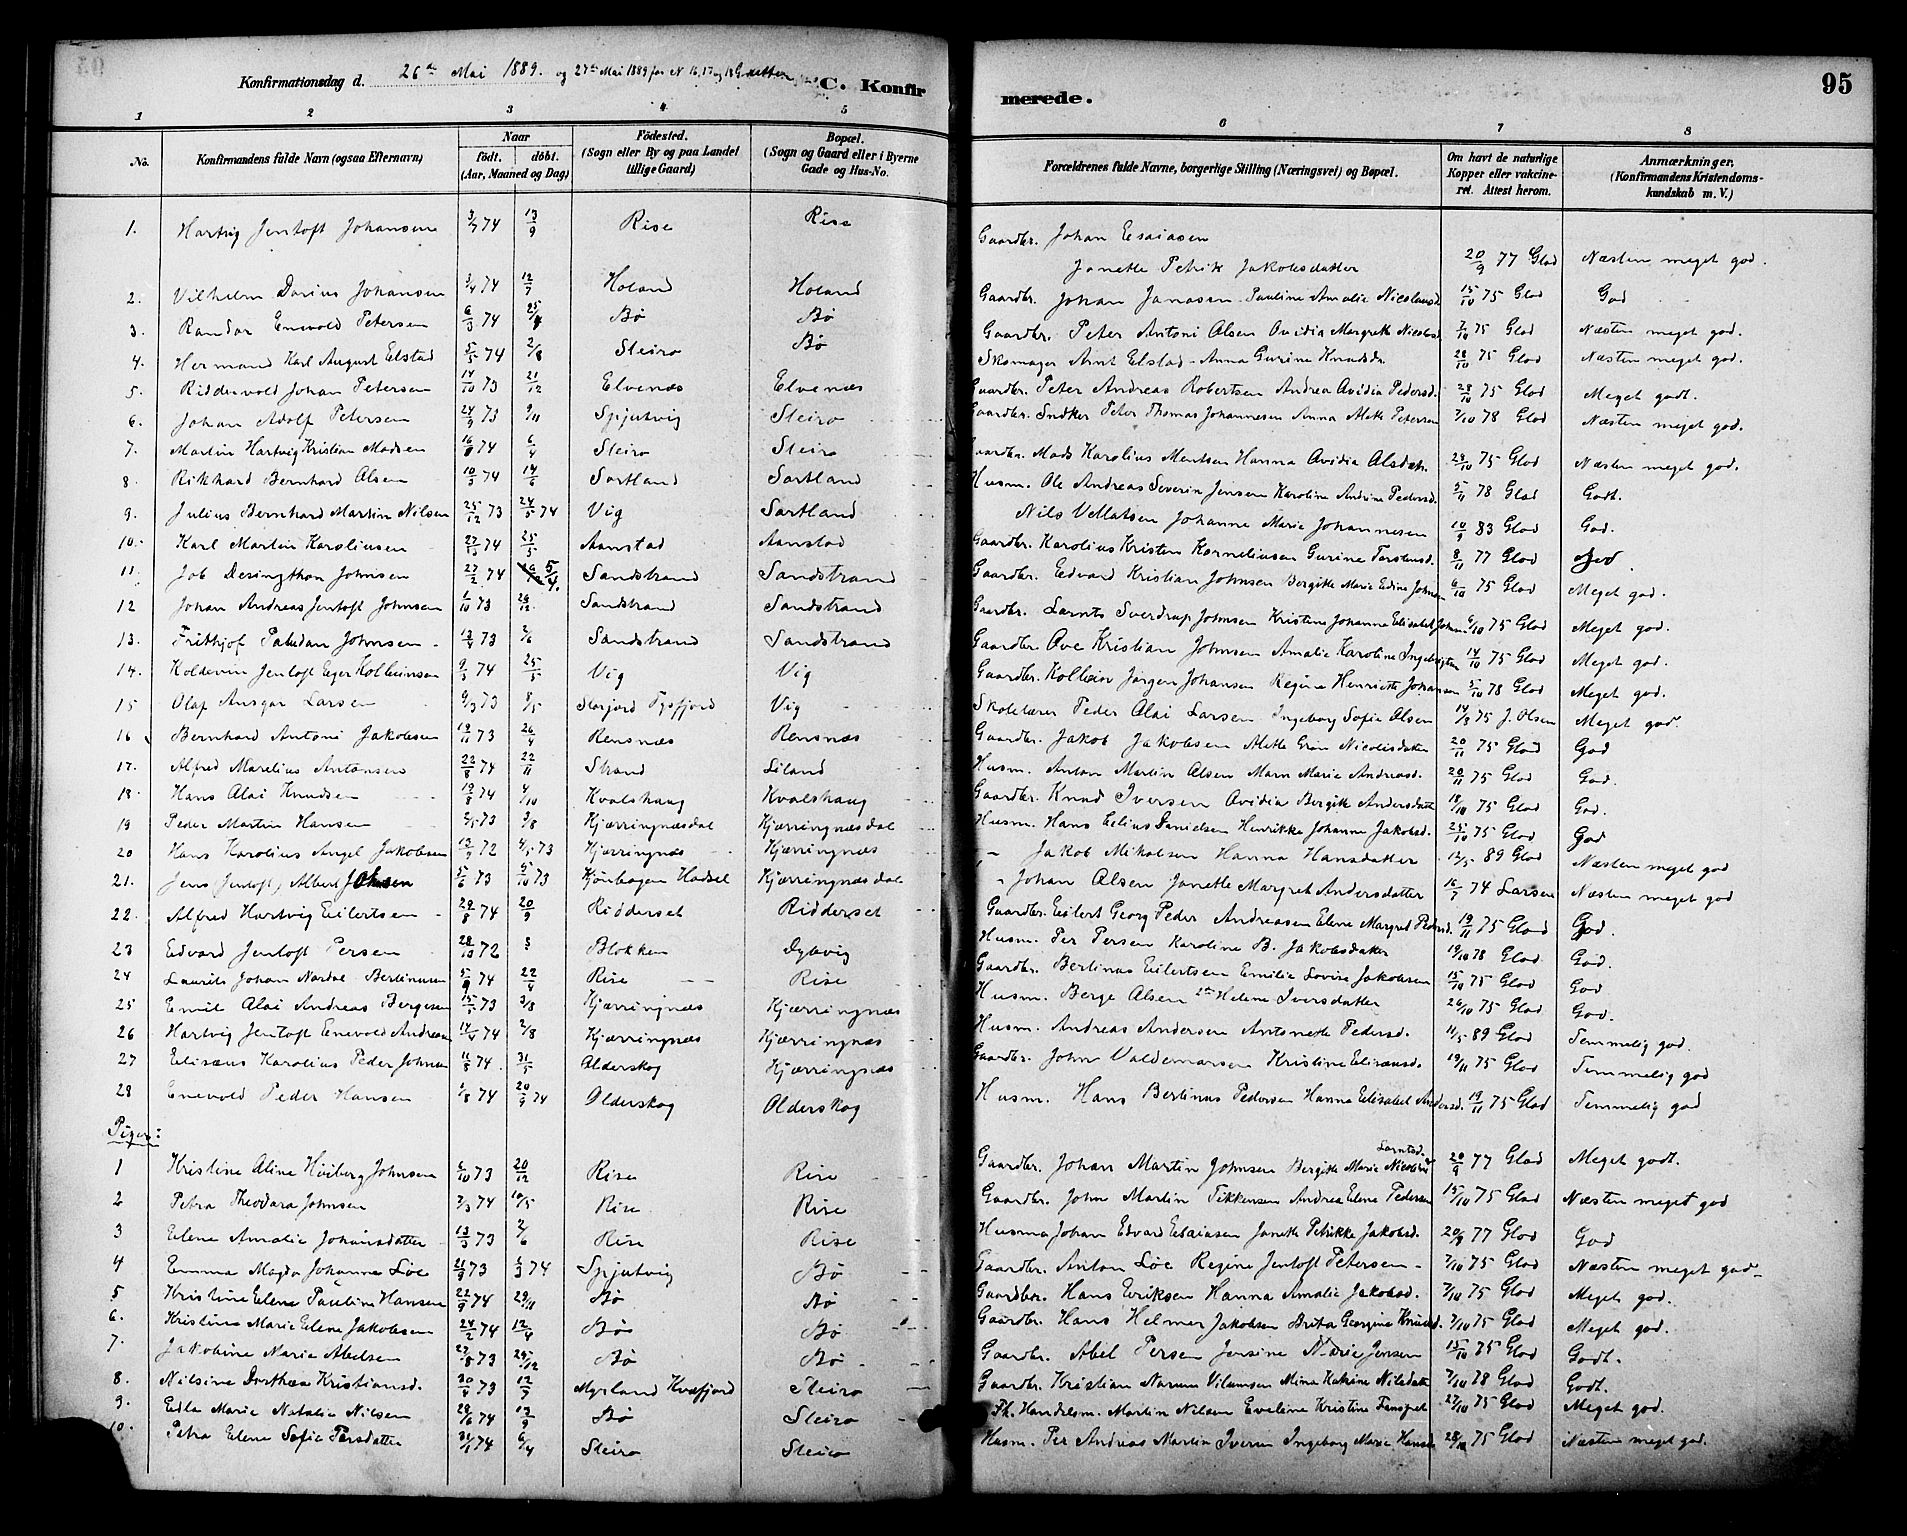 95
Konfirmationsdag d. 26de Mai 1889. og 27de Mai 1889 for N 16, 17 og 18 Gutter
C. Konfirmerede.
1 2 3 4 5 6 7 8
No. Konfirmandens fulde Navn (ogsaa Efternavn) Naar födt. döbt. (Aar, Maaned og Dag) Födested. (Sogn eller By og paa Landet tillige Gaard) Bopæl. (Sogn og Gaard eller i Byerne Gade og Hus-No. Forældrenes fulde Navne, borgerlige Stilling (Næringsvei) og Bopæl. Om havt de naturlige Kopper eller vakcineret. Attest herom. Anmærkninger, (Konfirmandens Kristendomskundskab m. V.)
1. Hartvig Jentoft Johansen 3/7 74 13/9 Rise Rise Gaardbr. Johan Esaiasen
Janette Petrik Jakobsdatter 20/9 77 Glad Næsten meget god.
2. Vilhelm Darius Johansen 3/4 74 12/7 Holand Holand Gaardbr. Johan Janasen Pauline Amalie Nicolaisd 15/10 75 Glad God
3. Randar Enevold Petersen 6/3 74 25/4 Bø Bø Gaardbr. Peter Antoni Olsen Ovidia Margrete Nicolaisd 7/10 75 Glad Næsten meget god.
4. Hermand Karl August Elstad 5/5 74 2/8 Steiro Bø Skomager Arnt Elstad - Anna Gurine Knudsdr. 28/10 75 Glad Næsten meget god.
5. Riddervold Johan Petersen 14/10 73 21/12 Elvenæs Elvenæs Gaardbr. Peter Andreas Robertsen Andrea Ovidia Pedersd. 28/10 75 Glad Meget godt.
6. Johan Adolf Petersen 24/9 73 9/11 Spjutvig Steiro Gaardbr. Sndker Peter Thomas Johannesen Anna Mette Petersen 7/10 78 Glad Næsten meget god.
7. Martin Hartvig Kristian Madsen 74 6/4 Steiro Steiro Gaardbr. Mads Karolius Mentsen Hanna Ovidia Olsdatr. 28/10 75 Glad Næsten meget god.
8 Rikhard Bernhard Olsen 10/3 74 14/6 Sortland Sortland Husm. Ole Andreas Severin Jensen Karoline Andrine Pedersd. 5/11 78 Glad Godt.
9. Julius Bernhard Martin Nilsen 25/12 73 24/5 74 Vig Sortland Nils Vellatsen Johanna Marie Johannesen 10/9 83 Glad God.
10. Karl Martin Karoliusen 74 25/5 Aanstad Aanstad Gaardbr. Karolius Kristen Korneliusen Gurine Torstensd. 8/11 77 Glad God.
11. Job Desingthon Johnsen 27/2 74 5/4. Sandstrand Sandstrand Gaardbr. Edvard Kristian Johnsen Bergitte Marie Edine Johnsen 6/10 75 Glad Meget god.
12 Johan Andreas Jentoft Johnsen 1/10 73 29/12 Sandstrand Sandstrand Gaardbr. Larnts Sverdrup Johnsen Kristine Johanna Elisabet Johan. 6/10 75 Glad Meget god.
13. Frithjof Paludan Johnsen 12/4 73 2/6 Sandstrand Sandstrand Gaardbr. Ove Kristian Johnsen Amalie Karoline Ingebrigtsen 14/10 75 Glad Meget god.
14. Koldevin Jentoft Eger Kolbeinsen 9/3 74 25/5 Vig Vig Gaardbr. Kolbein Jørgen Johansen Regine Henriette Johansen 5/10 78 Glad Meget god.
15 Olaf Ansgar Larsen 9/3 73 8/5 Storjord Tysfjord Vig Skolelærer Peder Olai Larsen Ingeborg Sofie Olsen 14/8 75 J. Olsen Meget god.
16 Bernhard Antoni Jakobsen 19/11 73 26/4 Rensnæs Rensnæs Gaardbr. Jakob Jakobsen Mette Grån Nicolaisdatter 20/11 75 Glad God
17. Alfred Marelius Antonsen 22/8 74 22/11 Strand Liland Husm. Anton Martin Olsen Marn Marie Andreasd. 20/11 75 Glad God.
18 Hans Olai Knudsen 19/8 74 4/10 Kvalshaug Kvalshaug Gaardbr. Knud Iversen Ovidia Bergitte Andersdatter 18/10 75 Glad God.
19 Peder Martin Hansen 2/5 73 3/8 Kjærringnæsdal Kjærringnæsdal Husm. Hans Edius Danielsen Henrikke Johanna Jakobsd. 25/10 75 Glad God
20 Hans Karolius Angel Jakobsen 12/9 72 4/5 73 Kjærringnæs Kjærringnæs - Jakob Mikalsen Hanna Hansdatter 12/5 89 Glad Næsten meget god
21. Jens (Jentoft) Albert Johnsen 5/6 73 5/10 73 Kjønhagen Hadsel Kjærringnæsdal " Johan Olsen Janette Margret Andersdatter 16/7 74 Larsen Næsten meget god
22. Alfred Hartvig Eilertsen 29/8 74 20/9 Ridderset Ridderset Gaardbr. Eilert Georg Peder Andreasen Elene Margret Pedersd. 19/11 75 Glad God.
23 Edvard Jentoft Persen 28/10 72 5 Blokken Dybvig Husm. Per Persen Karoline B. Jakobsdatter 19/10 78 Glad God.
24 Laurits Johan Nordal Bertinusen 5/9 74 22/4 Rise Rise Gaardbr. Bertinus Eilertsen Emilie Lovise Jakobsen 15/10 75 Glad God
25 Emil Olai Andreas Bergesen 15/5 73 3/8 Kjærringnæs Kjærringnæs Husm. Berge Olsen Helene Iversdatter 26/10 75 Glad God.
26 Hartvig Jentoft Enevold Andreasen 14/4 74 2/8 Kjærringnæs Kjærringnæs Husm. Andreas Andersen Antonette Pedersd. 11/5 89 Glad Temmelig god.
27 Elisæus Karolius Peder Johnsen 11/3 74 31/5 Olderskog Kjærringnæs Gaardbr. John Valdemarsen Kristine Elisæusd. 19/11 75 Glad Temmelig god
28 Enevold Peder Hansen 1/8 74 20/9 74 Olderskog Olderskog Husm. Hans Bertinus Pedersen Hanna Elisabet Andersd. 19/11 75 Glad Temmelig god
Piger:
1 Kristine Aline Høiberg Johnsen 6/10 73 20/12 Rise Rise Gaardbr. Johan Martin Johnsen Bergitte Marie Nicoline Larntsd. 20/9 77 Glad Meget godt.
2 Petra Theodora Johnsen 2/3 74 10/5 Rise Rise Gaardbr. John Martin Tikkensen Andrea Elene Pedersen 15/10 75 Glad Næsten meget god
3 Elene Amalie Johansdatter 13/3 73 2/6 Rise Rise Husma Johan Edvard Esaiasen Janette Petrikke Jakobsd. 20/9 77 Glad God
4 Emma Magda Johanna Löe 21/9 73 1/3 74 Spjutvig Bø Gaardbr. Anton Löe Regine Jentoft Petersen - 7/10 75 Glad Næsten meget god
5 Kristine Elene Pauline Hansen 22/9 74 29/11 Bø Bø Gaardbr. Hans Eriksen Hanna Amalie Jakobsd. 7/10 75 Glad Meget god.
6. Kristine Marie Elene Jakobsen 24/2 74 12/4 Bø Bø Gaardbr. Hans Helmer Jakobsen Brita Georgine Knudsd. 7/10 75 Glad Meget god.
7. Jakobine Marie Abelsen 27/8 73 25/12 Bø Bø Gaardbr. Abel Persen Jensine Marie Jensen 15/10 75 Glad Godt.
8. Nilsine Dorthea Kristiansd. 30/4 73 12/7 Myrland Kvæfjord Steiro Gaardbr. Kristian Norum Vilumsen Mina Katrine Nilsdatter 7/10 78 Glad Godt.
9. Edla Marie Natalie Nilsen 28/6 74 13/9 Bø Steiro Fh. Handelsm. Martin Nilsen Eveline Kristine 27/10 75 Glad Meget god.
10. Petra Elene Sofie Persdatter 31/1 74 6/4 Steiro Steiro Husm. Per Andreas Martin Iversen Ingeborg Marie Hansd. 28/10 75 Glad Næsten meget god.